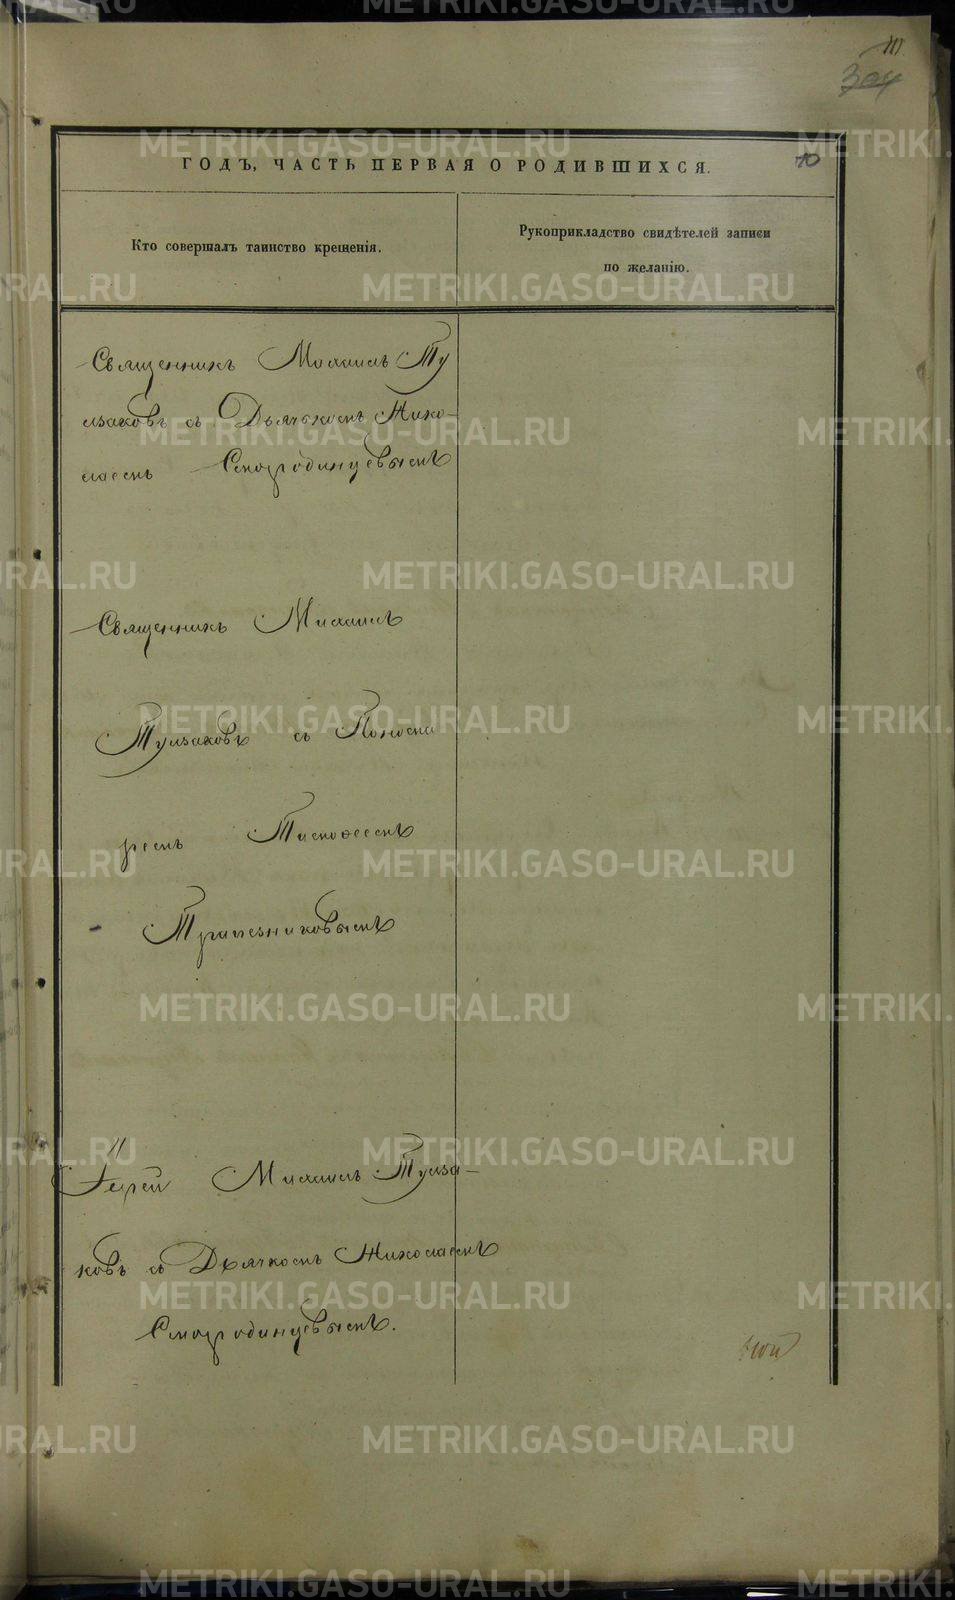 111
304
ГОДЪ, ЧАСТЬ ПЕРВАЯ О РОДИВШИХСЯ.
10
Кто совершалъ таинство крещенія.
Рукоприкладство свидѣтелей записи
по желанію.
Священникъ Михаилъ Ту
лзаковъ съ Дьячькомъ Нико-
лаемъ Смородинцевымъ
Священникъ Михаилъ
Тулзаковъ съ Понома
ремъ Тимофеемъ
Трапезниковымъ
Іерей Михаилъ Тулза-
ковъ съ Дьячкомъ Николаемъ
Смородинцевымъ.
METRIKI.GASO-URAL.RU